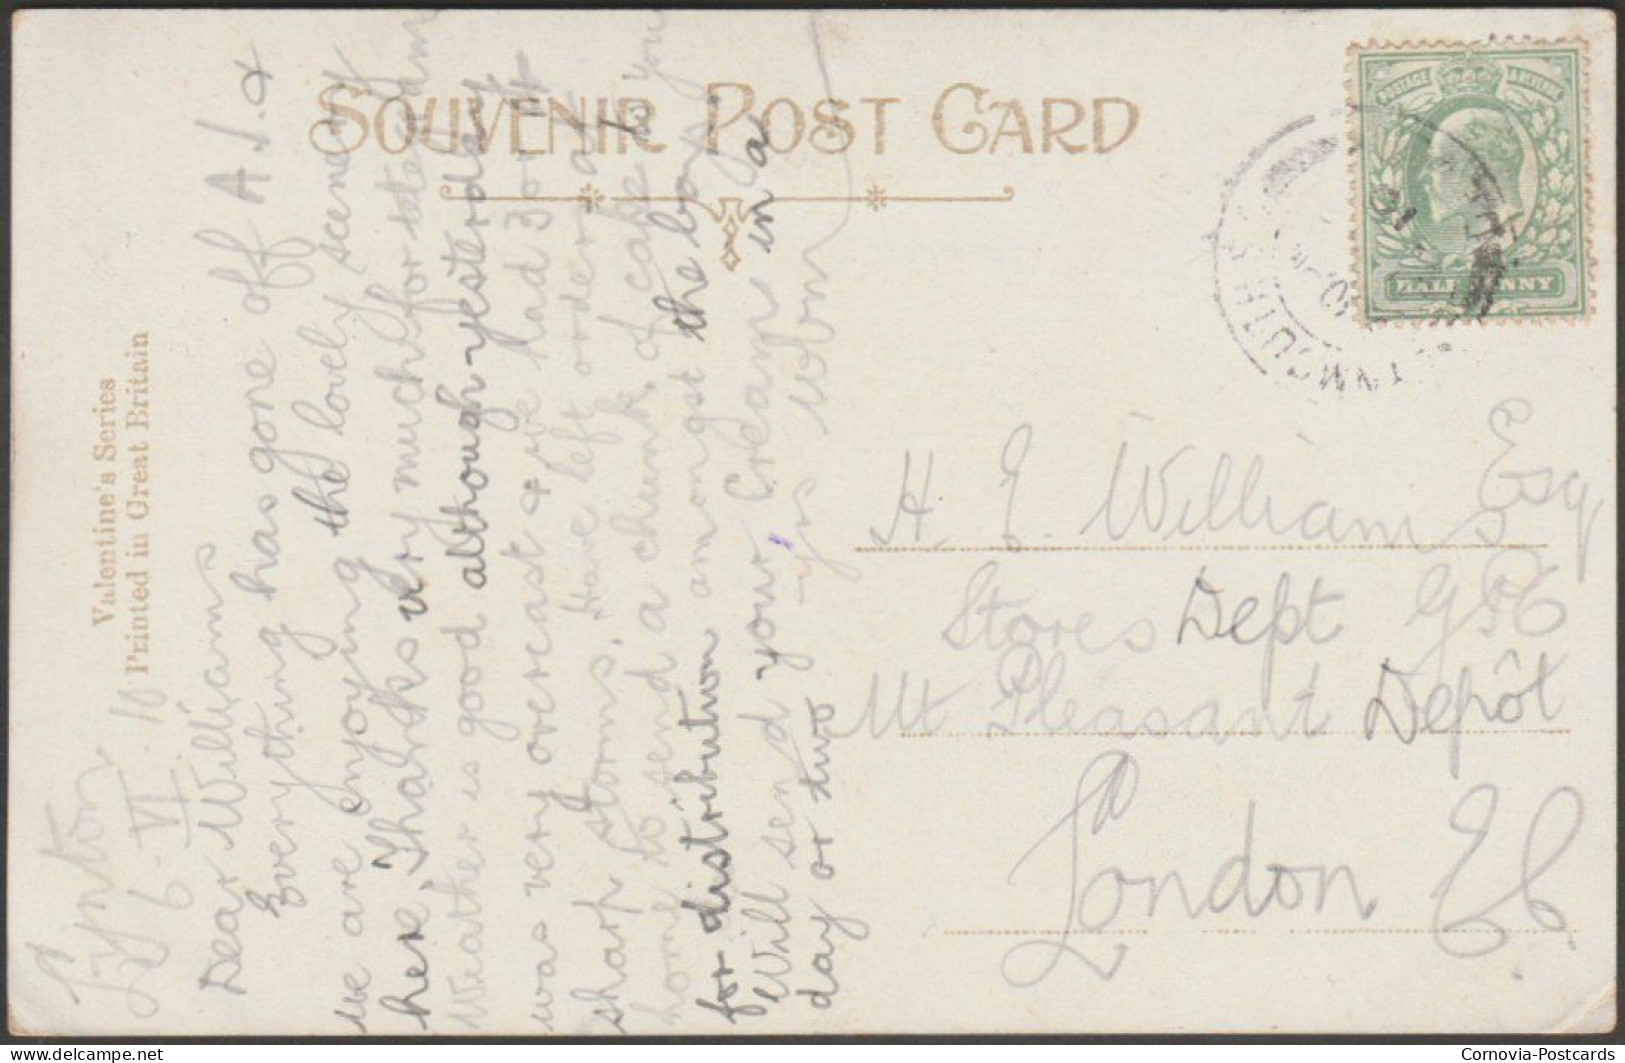 SOUVENIR POST CARD
Valentine's Series
Printed in Great Britain
HALFPENNY
POSTAGE REVENUE
LYNMOUTH
Lynton
6.VI.10
Dear Williams
Everything has gone off A.1. &
we are enjoying the lovely scenery
here. Thanks very much for
Weather is good although yesterday
was very overcast & we had 3 or 4
sharp storms. Have left order at
home to send a chunk of cake to you
for distribution amongst the boys
Will send your Cream in a
day or two yrs
H. E. Williams Esq
Stores Dept G.P.O
Mt Pleasant Depôt
London E.C.
delcampe.net
Cornovia-Postcards